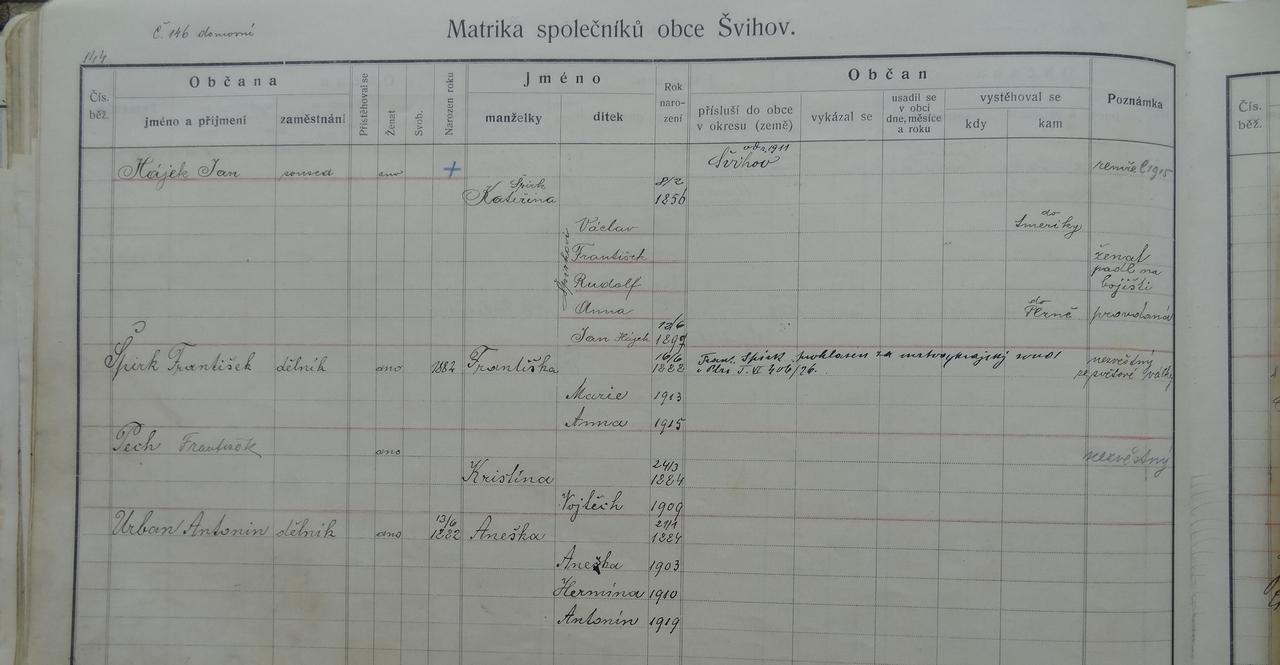 Č. 146 domovní
Matrika společníků obce Švihov.
144
Čís. běž.
Občana
jméno a příjmení
zaměstnání
Přistěhoval se
Ženat
Svob.
Narozen roku
Jméno
manželky
dítek
Rok naro- zení
Občan
přísluší do obce v okresu (země)
vykázal se
usadil se v obci dne, měsíce a roku
vystěhoval se
kdy
kam
Poznámka
Čís. běž.
od r. 1911
Hájek Jan soused ano + Švihov zemřel 1915
Špirk 8/2
Kateřina 1856
Václav do Ameriky
Špirkovi
František ženat
padl na
Rudolf bojišti
Anna do Plzně provdaná
12/6
Jan Hájek 1897
16/6
Špirk František dělník ano 1882 Františka 1882 Fran. Špirk prohlášen za mrtva, krajský soud nezvěstný
v Plzni T. VI 406/26. ze světové války
Marie 1913
Anna 1915
Pech František ano nezvěstný
24/3
Kristína 1884
Vojtěch 1909
13/6 21/1
Urban Antonin dělník ano 1882 Aneška 1884
Anežka 1903
Hermína 1910
Antonín 1919